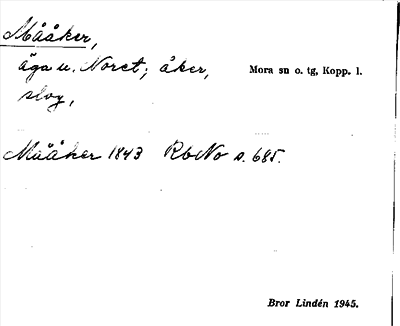 Mååker,
äga u. Noret; åker, Mora sn o. tg, Kopp. l.
slog,
Mååker 1843 RbNo s. 685.
Bror Lindén 1945.